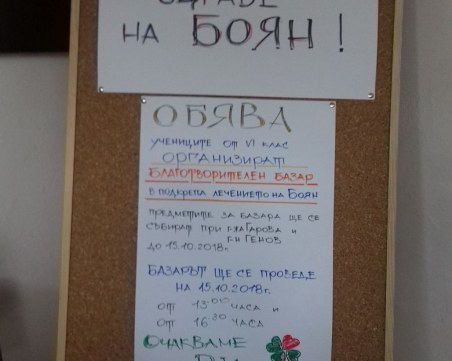 ЗДРАВЕ
НА БОЯН!
ОБЯВА
УЧЕНИЦИТЕ ОТ VI КЛАС
ОРГАНИЗИРАТ
БЛАГОТВОРИТЕЛЕН БАЗАР
В ПОДКРЕПА ЛЕЧЕНИЕТО НА БОЯН
ПРЕДМЕТИТЕ ЗА БАЗАРА ЩЕ СЕ
СЪБИРАТ ПРИ Г-ЖА ГАРОВА И
Г-Н ГЕНОВ
ДО 15.10.2018г.
БАЗАРЪТ ЩЕ СЕ ПРОВЕДЕ
НА 15.10.2018г.
ОТ 13 00 ЧАСА И
ОТ 16 30 ЧАСА
ОЧАКВАМЕ